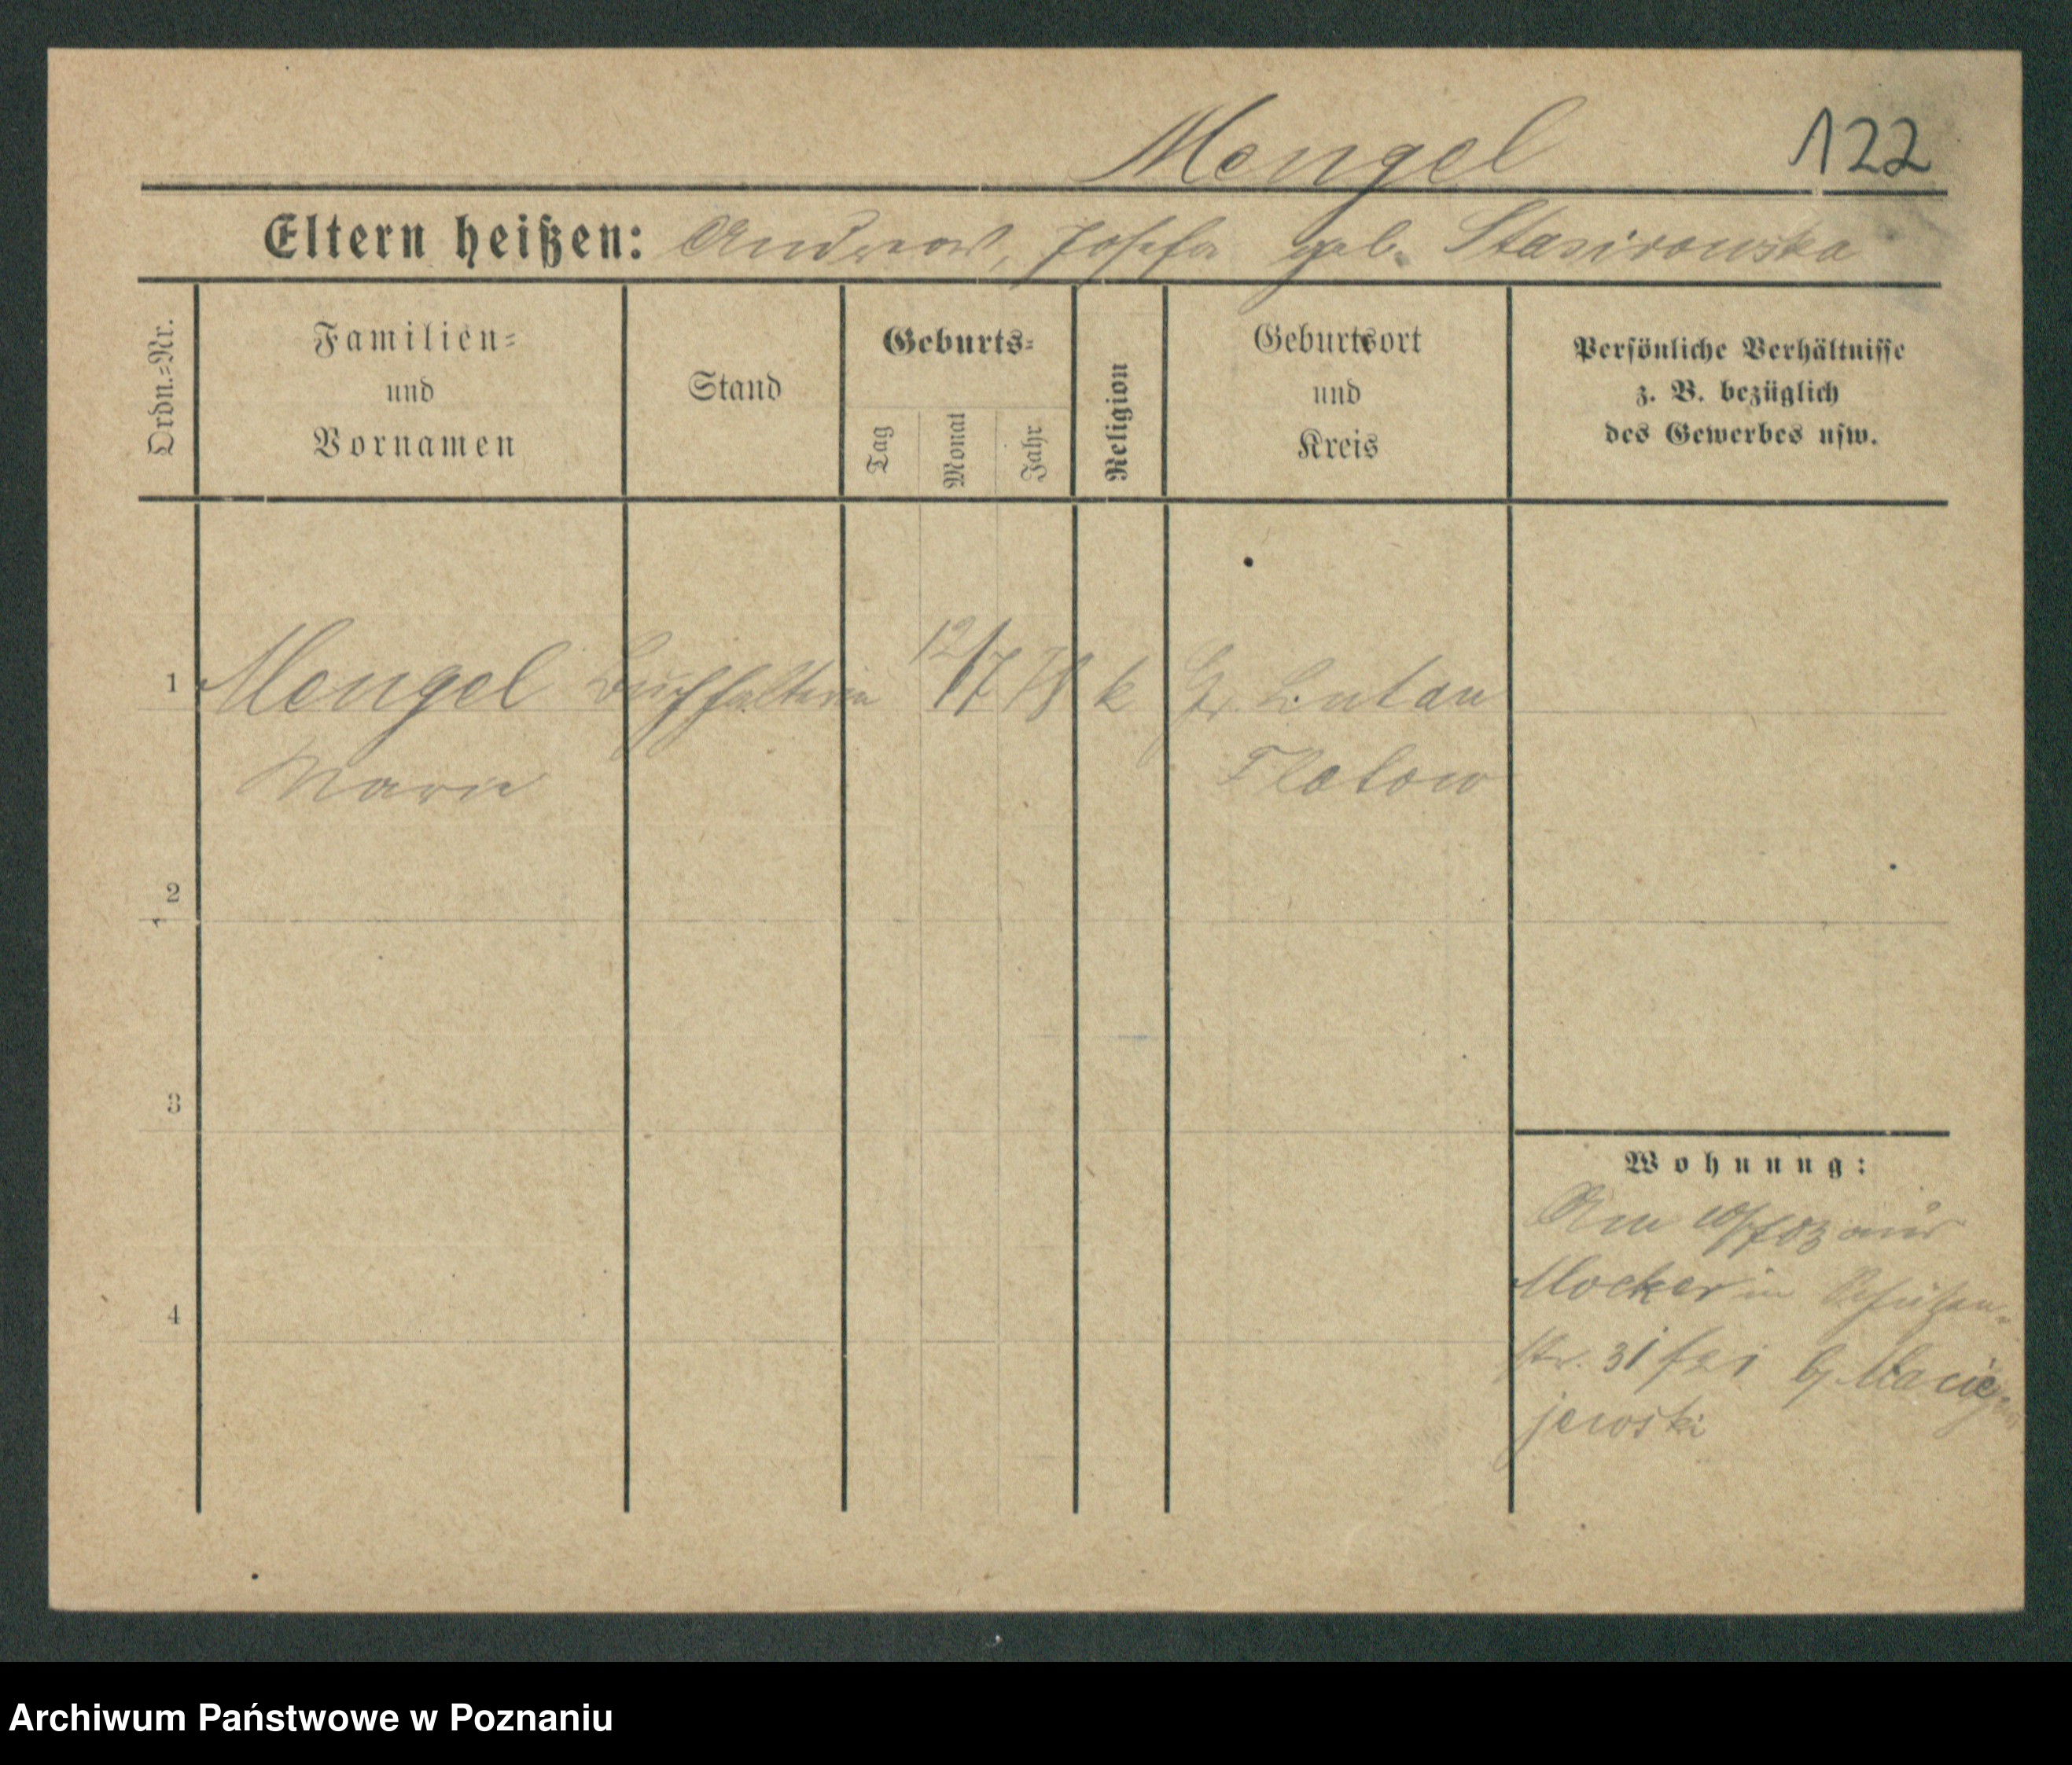 Mengel 122
Eltern heißen: Andreas, Josefa geb. Stasirowska
Ordn.=Nr.
Familien=
und
Vornamen
Stand
Geburts=
Tag
Monat
Jahr
Religion
Geburtsort
und
Kreis
Persönliche Verhältnisse
z. B. bezüglich
des Gewerbes usw.
1 Mengel Buchhalterin 12/7 78 k Gr. Lutau
Marie Flatow
2
3
4
Wohnung:
Am 10/7 03 aus
Mocker in Schützen=
str. 31 bei Macie=
jewski
Archiwum Państwowe w Poznaniu